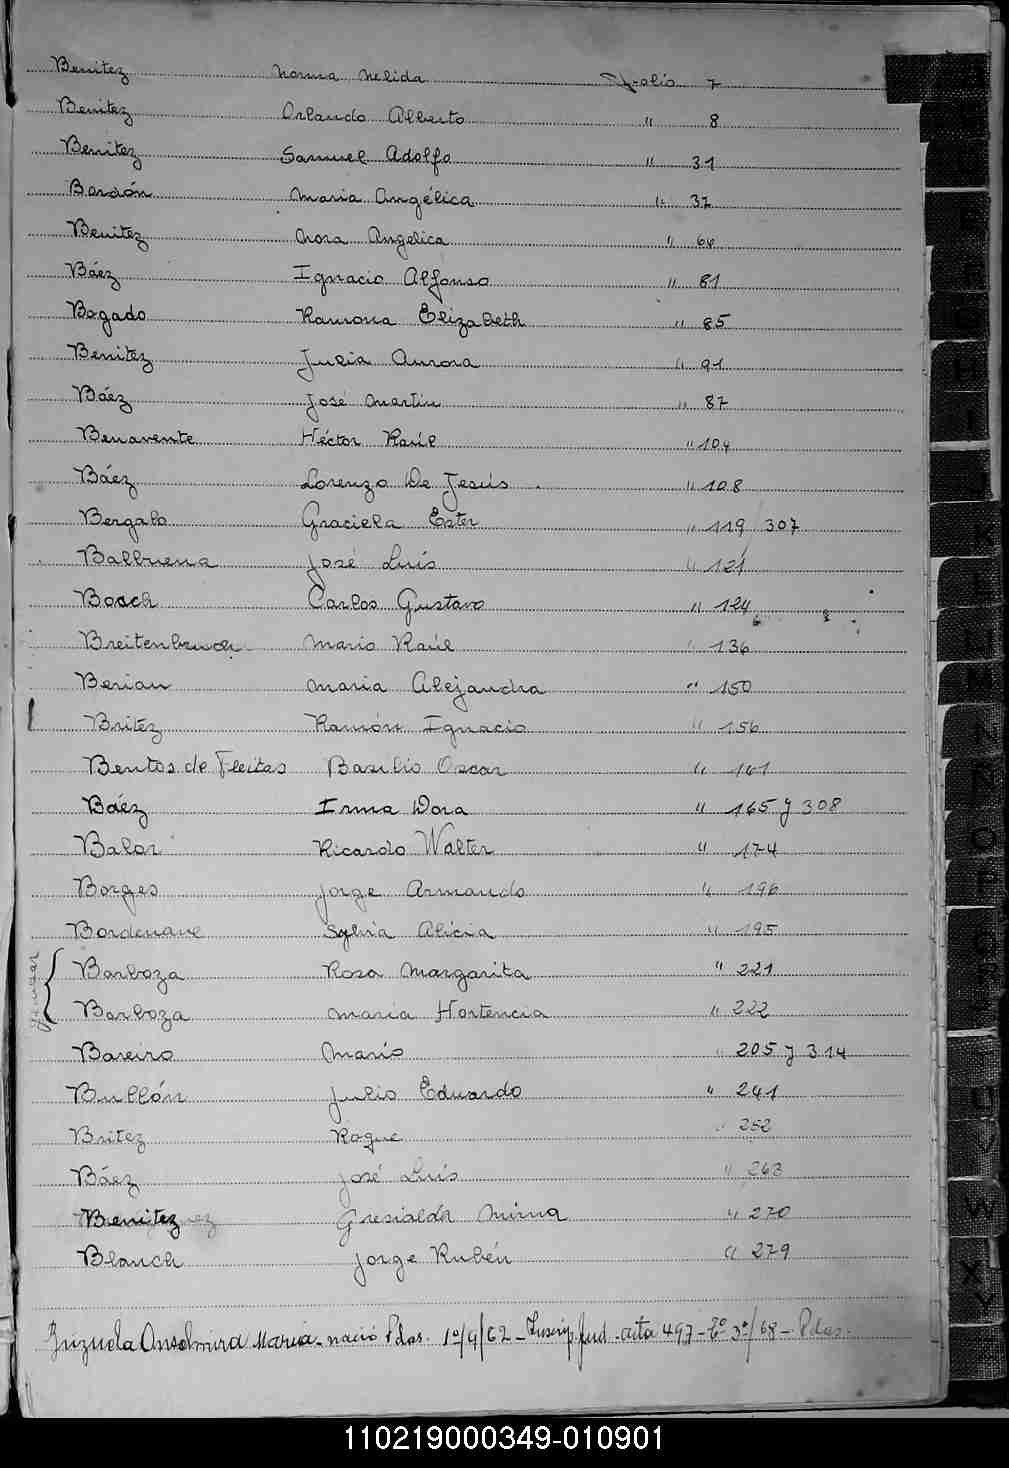 Benitez Norma Nelida Folio 7
Benitez Orlando Alberto " 8
Benitez Samuel Adolfo " 31
Bordón Maria Angélica " 37
Benitez Nora Angelica " 64
Báez Ignacio Alfonso " 81
Bogado Ramona Elizabeth " 85
Benitez Julia Aurora " 91
Báez José Martin " 87
Benavente Héctor Raúl " 104
Báez Lorenzo De Jesús " 108
Bergalo Graciela Ester " 119/307
Balbuena José Luís " 121
Bosch Carlos Gustavo " 124
Breitenbruch Mario Raúl " 136
Berian Maria Alejandra " 150
Britez Ramón Ignacio " 156
Bentos de Fleitas Basilio Oscar " 161
Báez Irma Dora " 165 y 308
Balor Ricardo Walter " 174
Borges Jorge Armando " 196
Bordenave Sylvia Alicia " 195
Barboza Rosa Margarita " 221
Barboza Maria Hortencia " 222
Bareiro Mario " 205 y 314
Bullón Julio Eduardo " 241
Britez Roque " 252
Báez José Luís " 263
Benitez Griselda Mirna " 270
Blanch Jorge Rubén " 279
Anselmira Maria - nació Pdas. 1º/4/62 - Inscrip. Jud. acta 497 - Tº 3º/68 - Pdas.
H
I
J
K
L
M
N
Ñ
O
P
Q
T
U
V
W
X
Y
110219000349-010901